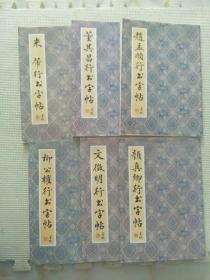 米芾行书字帖
董其昌行书字帖
赵孟頫行书字帖
柳公权行书字帖
文徵明行书字帖
颜真卿行书字帖